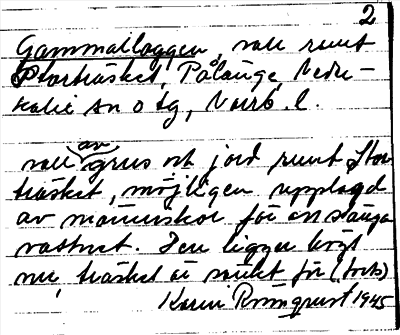 2
Gammalloggen, vall runt
Storträsket, Pålänge, Neder-
kalix sn o tg, Norrb. l.
vall av grus och jord runt Stor
träsket, möjligen upplagd
av människor för att stänga
vattnet. Den ligger högt
nu, träsket är sänkt för (forts)
Karin Rönnqvist 1945